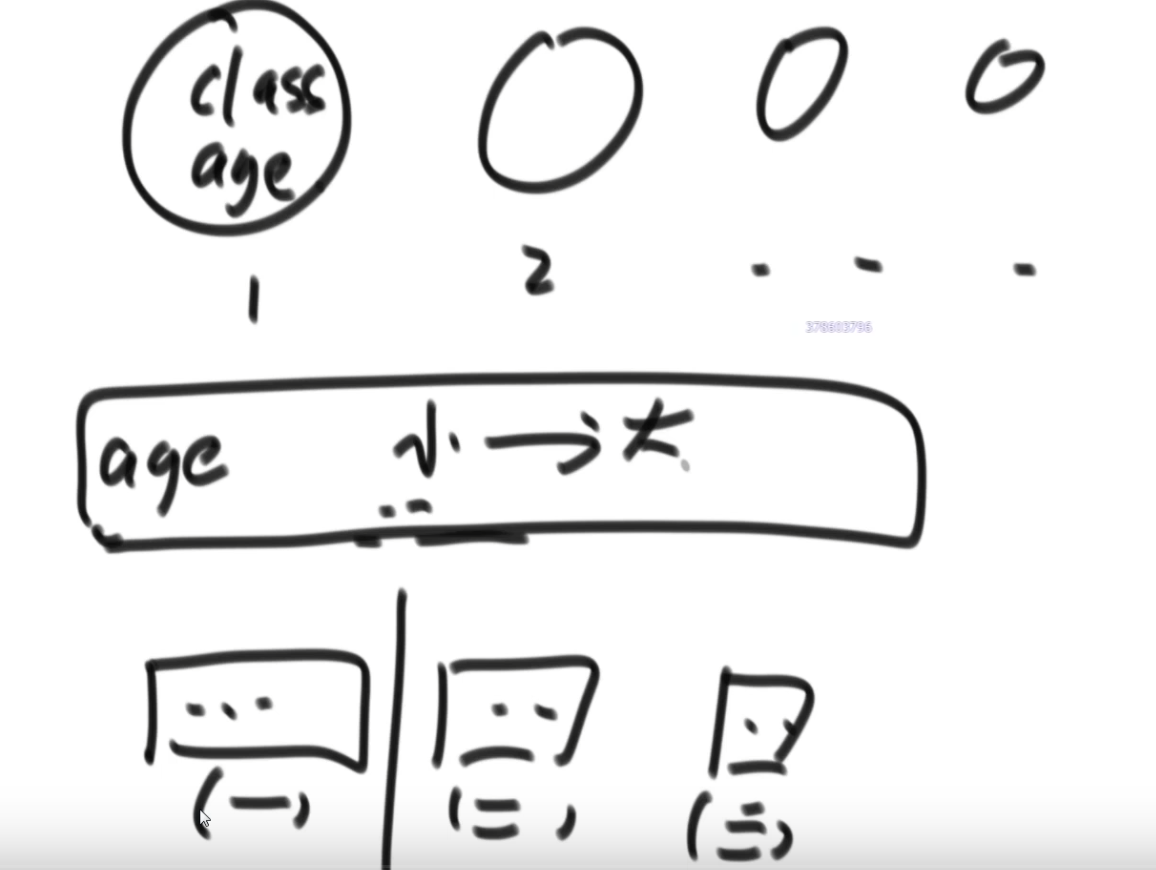 class
age
1 2 . . .
378603796
age 小 → 大
(一) (二) (三)